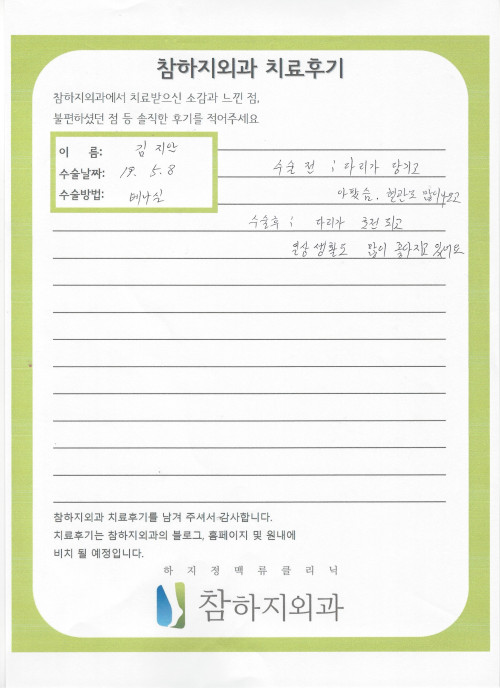 참하지외과 치료후기
참하지외과에서 치료받으신 소감과 느낀 점,
불편하셨던 점 등 솔직한 후기를 적어주세요
이 름: 김 지안
수술날짜: 19. 5. 8
수술방법: 베나실
수술 전 ; 다리가 당기고
아팠슴. 혈관도 많이
수술후 ; 다리가 호전 되고
일상 생활도 많이 좋아지고 있어요
참하지외과 치료후기를 남겨 주셔서 감사합니다.
치료후기는 참하지외과의 블로그, 홈페이지 및 원내에
비치 될 예정입니다.
하지정맥류클리닉
참하지외과